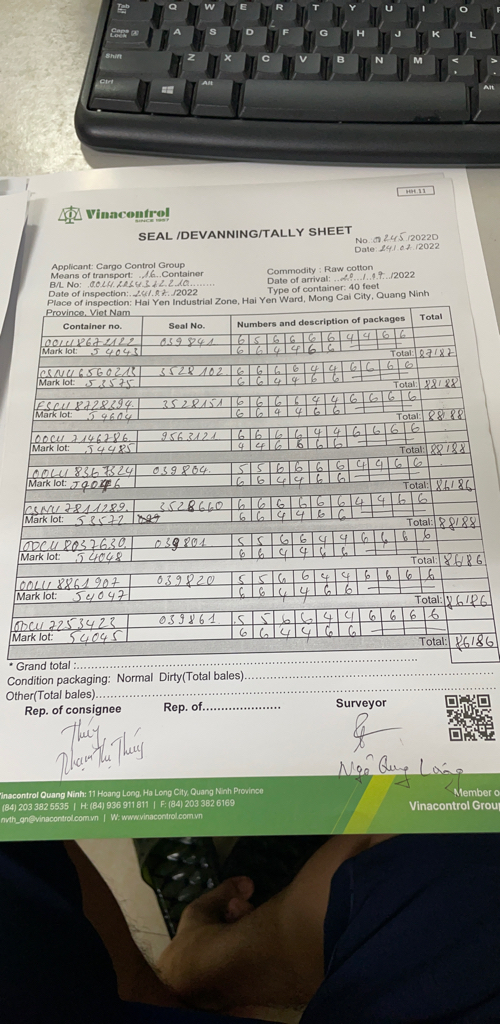 Tab Q W E R T Y U I O
Caps Lock A S D F G H J K L
Shift Z X C V B N M < >
Ctrl Alt Alt
HH 11
Vinacontrol
SINCE 1957
SEAL /DEVANNING/TALLY SHEET
No. 0245/2022D
Date: 24/07/2022
Applicant: Cargo Control Group
Commodity : Raw cotton
Means of transport: 16 Container
Date of arrival: /2022
B/L No:
Type of container: 40 feet
Date of inspection: 24/07/2022
Place of inspection: Hai Yen Industrial Zone, Hai Yen Ward, Mong Cai City, Quang Ninh
Province, Viet Nam
Container no. Seal No. Numbers and description of packages Total
OOLU8672122 039841 6 5 6 6 6 6 4 4 6 6
Mark lot: 54043 6 6 4 4 6 6
Total: 87/87
CSNU6560213 3528102 6 6 6 6 4 4 6 6 6 6
Mark lot: 53575 6 6 4 4 6 6
Total: 88/88
FSCU8728394 3528151 6 6 6 6 4 4 6 6 6 6
Mark lot: 54604 6 6 4 4 6 6
Total: 88/88
OOCU 7146786 9563121 6 6 6 6 4 4 6 6 6 6
Mark lot: 54485 4 4 6 6 6 6
Total: 88/88
OOLU 8367324 039804 5 5 6 6 6 6 4 4 6 6
Mark lot: 6 6 4 4 6 6
Total: 86/86
CSNU7811289 3528660 6 6 6 6 6 6 4 4 6 6
Mark lot: 53572 6 6 4 4 6 6
Total: 88/88
OOCU8057630 039801 5 5 6 6 4 4 6 6 6 6
Mark lot: 54048 6 6 4 4 6 6
Total: 86/86
OOLU 8861907 039820 5 5 6 6 4 4 6 6 6 6
Mark lot: 54047 6 6 4 4 6 6
Total: 86/86
OOCU 7253423 039861 5 5 6 6 4 4 6 6 6 6
Mark lot: 54045 6 6 4 4 6 6
Total: 86/86
* Grand total :
Condition packaging: Normal Dirty(Total bales)
Other(Total bales)
Rep. of consignee Rep. of Surveyor
Thúy
Phạm Thị Thúy
Ngô Quang
Vinacontrol Quang Ninh: 11 Hoang Long, Ha Long City, Quang Ninh Province
(84) 203 382 5535 | H: (84) 936 911 811 | F: (84) 203 382 6169
nvth_qn@vinacontrol.com.vn | W: www.vinacontrol.com.vn
Member o
Vinacontrol Group